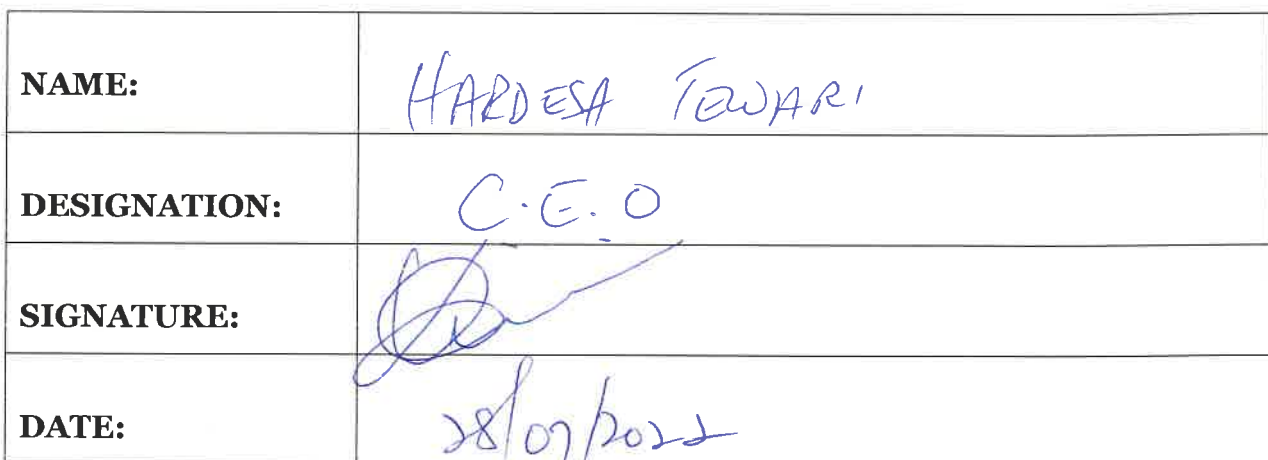 NAME: HARDESA TEWARI
DESIGNATION: C.E.O
SIGNATURE:
DATE: 28/07/2022